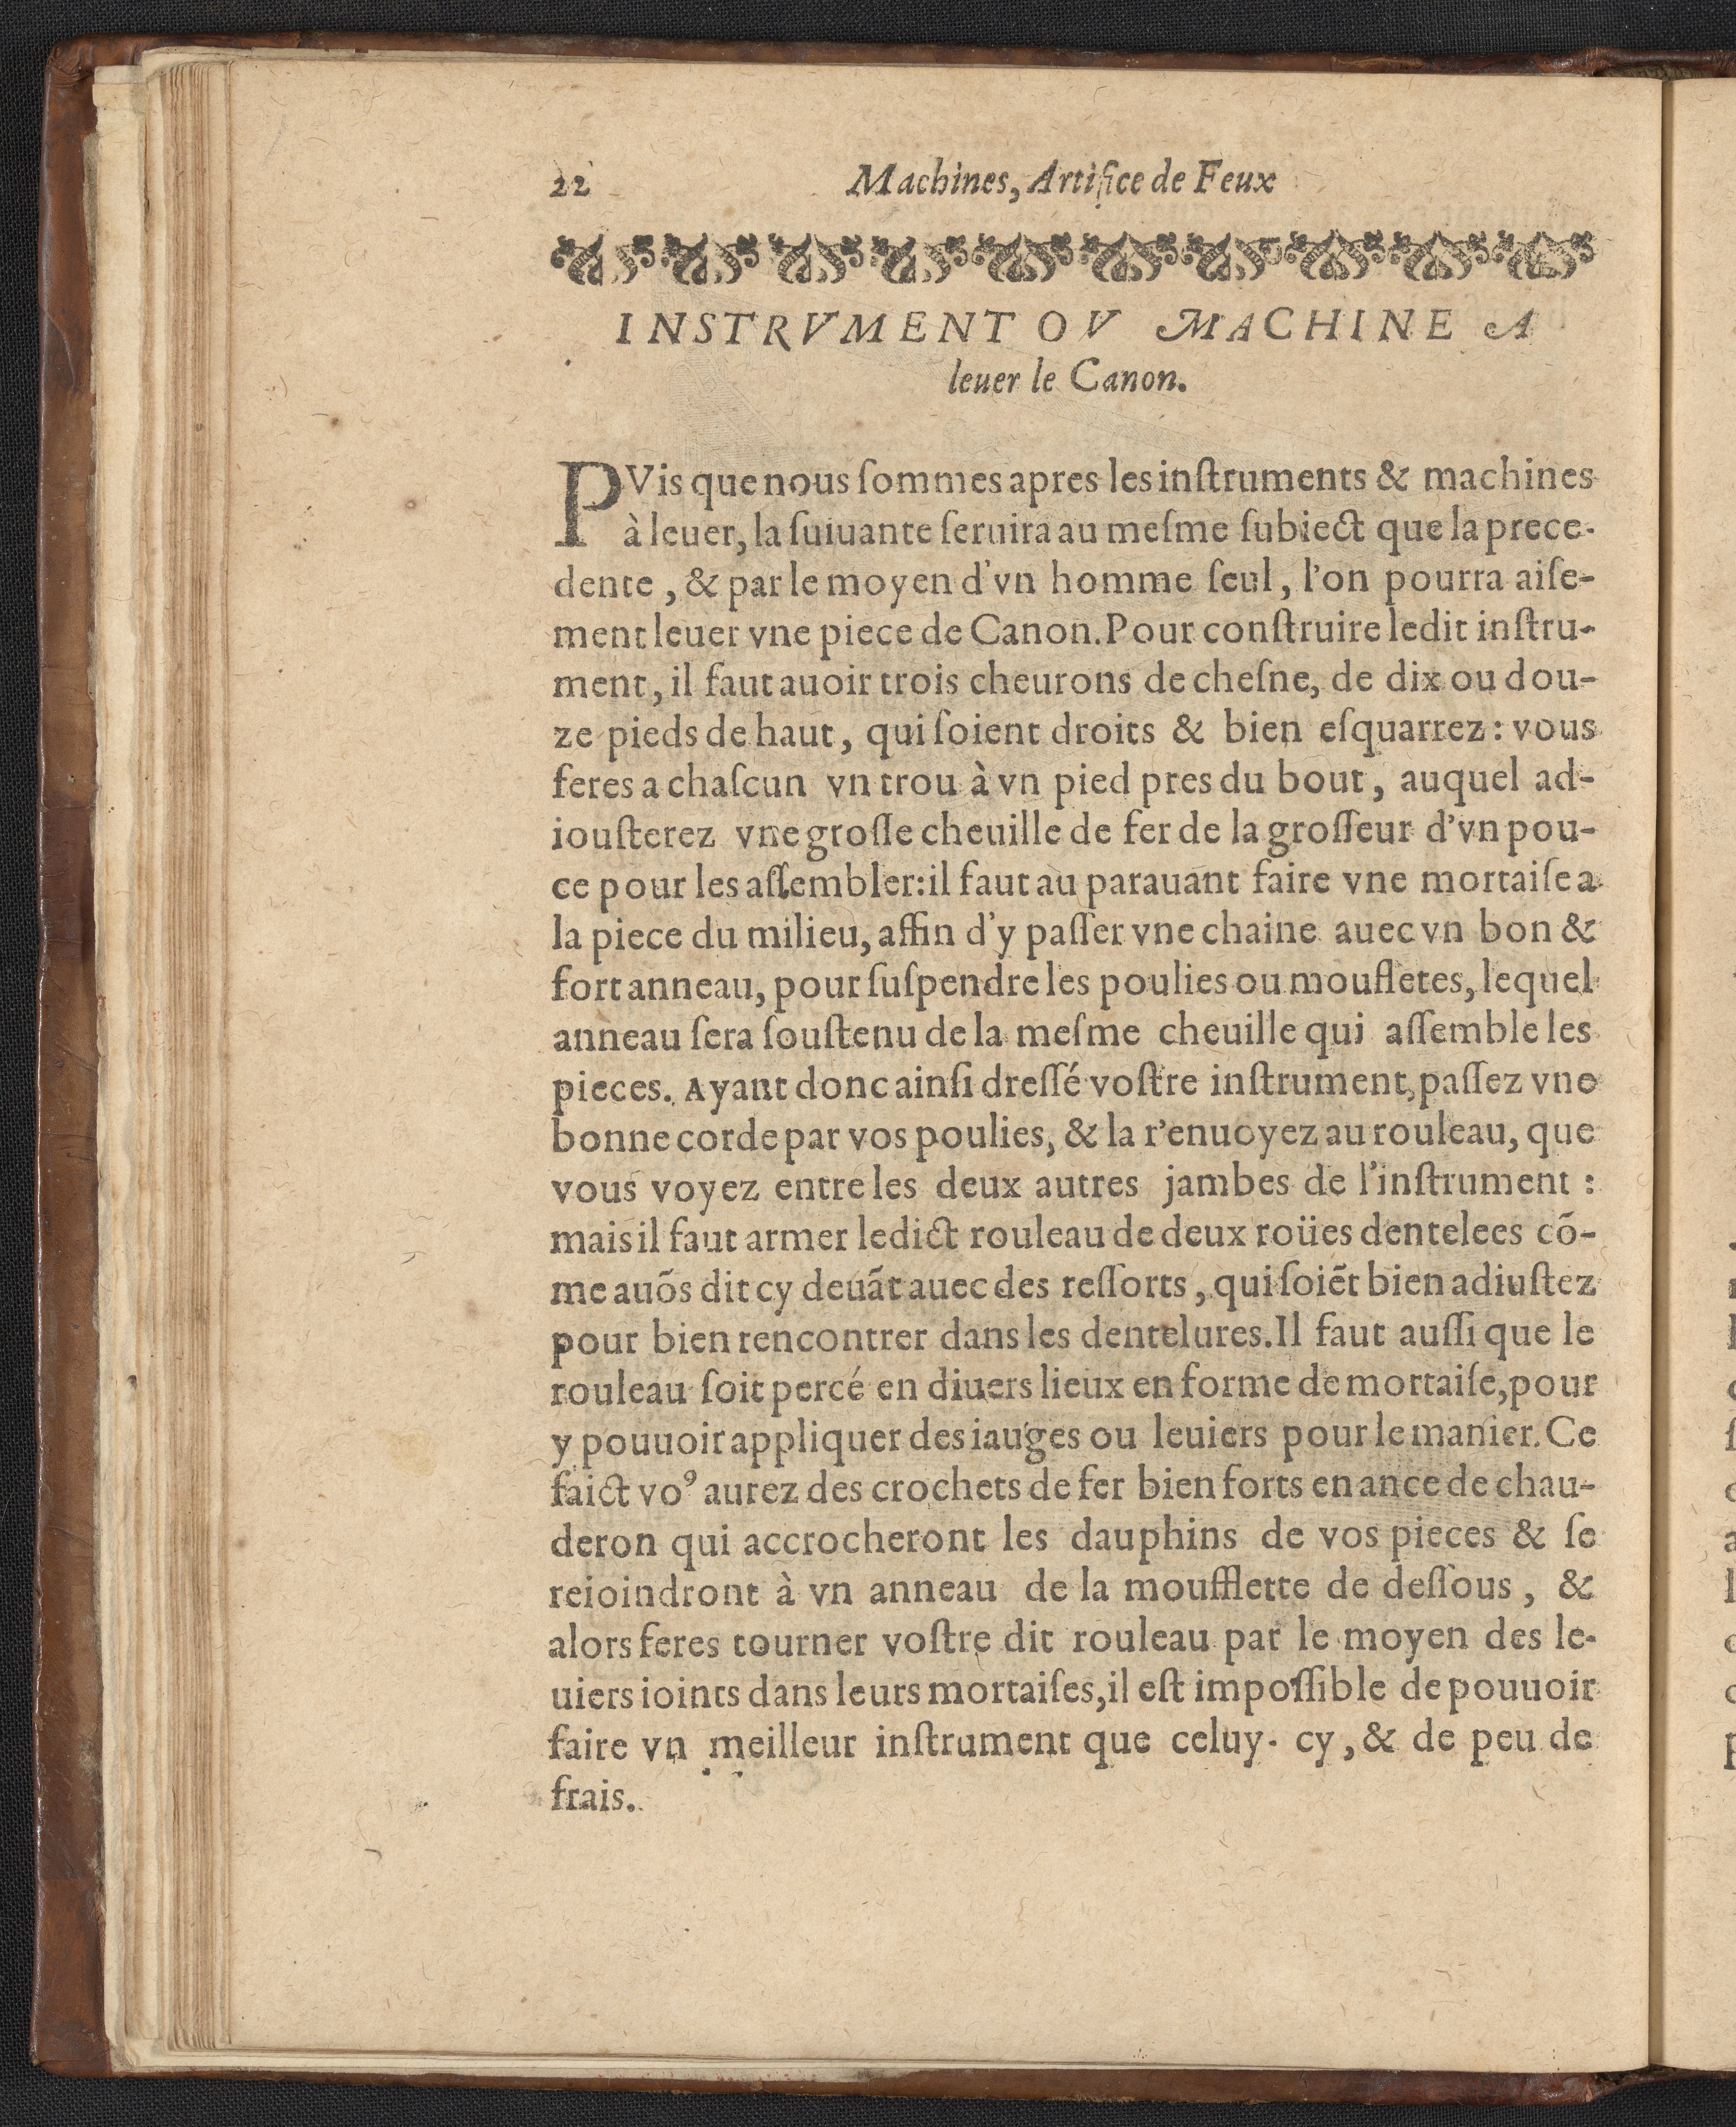 22 Machines, Artifice de Feux
INSTRVMENT OV MACHINE A
leuer le Canon.
PVis que nous ſommes apres les inſtruments & machines
à leuer, la ſuiuante ſeruira au meſme ſubiect que la prece-
dente, & par le moyen d'vn homme ſeul, l'on pourra aiſe-
ment leuer vne piece de Canon. Pour conſtruire ledit inſtru-
ment, il faut auoir trois cheurons de cheſne, de dix ou dou-
ze pieds de haut, qui ſoient droits & bien eſquarrez: vous
feres a chaſcun vn trou à vn pied pres du bout, auquel ad-
iouſterez vne groſſe cheuille de fer de la groſſeur d'vn pou-
ce pour les aſſembler: il faut au parauant faire vne mortaiſe a
la piece du milieu, affin d'y paſſer vne chaine auec vn bon &
fort anneau, pour ſuſpendre les poulies ou mouffletes, lequel
anneau ſera ſouſtenu de la meſme cheuille qui aſſemble les
pieces. Ayant donc ainſi dreſſé voſtre inſtrument, paſſez vne
bonne corde par vos poulies, & la r'enuoyez au rouleau, que
vous voyez entre les deux autres jambes de l'inſtrument :
mais il faut armer ledict rouleau de deux roües dentelees cõ-
me auõs dit cy deuãt auec des reſſorts, qui ſoiẽt bien adiuſtez
pour bien rencontrer dans les dentelures. Il faut auſſi que le
rouleau ſoit percé en diuers lieux en forme de mortaiſe, pour
y pouuoir appliquer des iauges ou leuiers pour le manier. Ce
faict voꝰ aurez des crochets de fer bien forts en ance de chau-
deron qui accrocheront les dauphins de vos pieces & ſe
reioindront à vn anneau de la moufflette de deſſous, &
alors feres tourner voſtre dit rouleau par le moyen des le-
uiers ioints dans leurs mortaiſes, il eſt impoſſible de pouuoir
faire vn meilleur inſtrument que celuy-cy, & de peu de
frais.